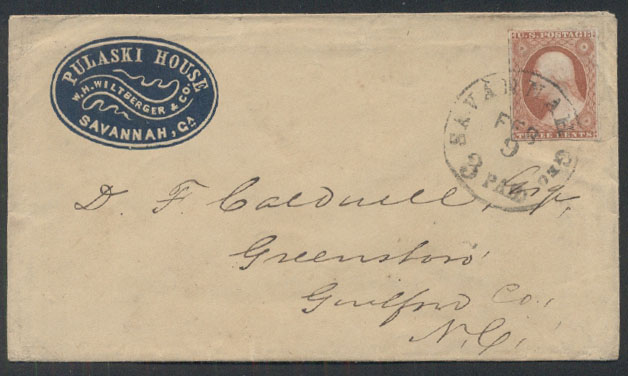 PULASKI HOUSE
W.H. WILTBERGER & CO.
SAVANNAH, GA
U.S. POSTAGE
THREE CENTS
SAVANNAH GEO
FEB
9
3 PAID
D. F. Caldwell, Esq.,
Greensboro'
Guilford Co.,
N.C.